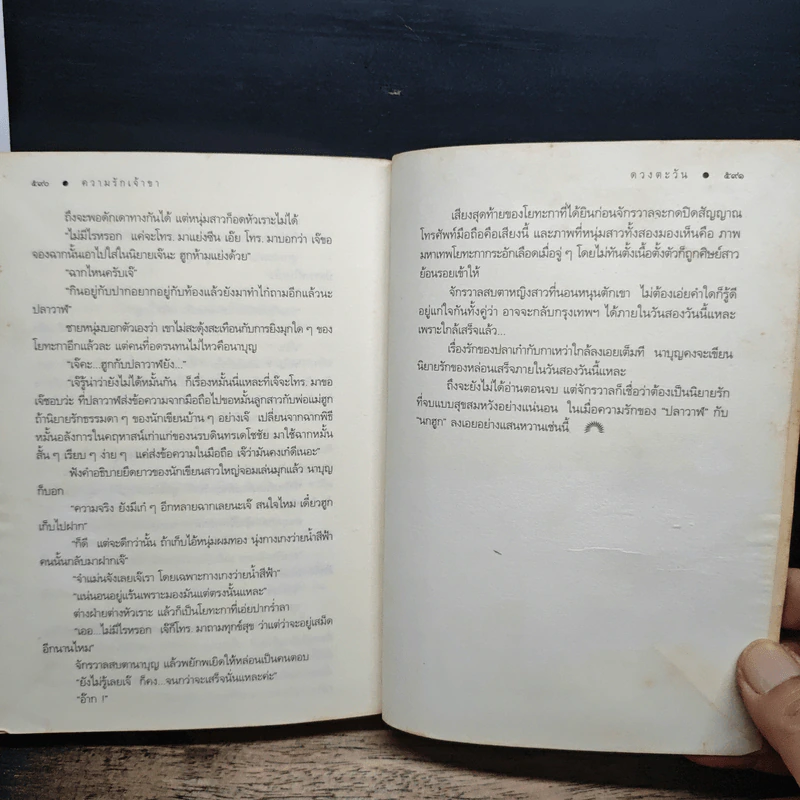 ๕๙๐ ● ความรักเจ้าขา
ถึงจะพอดักเดาทางกันได้ แต่หนุ่มสาวก็อดหัวเราะไม่ได้
"ไม่มีไรหรอก แค่จะโทร. มาแย่งซีน เอ๊ย โทร. มาบอกว่า เจ๊ขอ
จองฉากนั้นเอาไปใส่ในนิยายเจ๊นะ ฮูกห้ามแย่งด้วย"
"ฉากไหนครับเจ๊"
"กินอยู่กับปากอยากอยู่กับท้องแล้วยังมาทำไก๋ถามอีกแล้วนะ
ปลาวาฬ"
ชายหนุ่มบอกตัวเองว่า เขาไม่สะดุ้งสะเทือนกับการยิงมุกใด ๆ ของ
โยทะกาอีกแล้วละ แต่คนที่อดรนทนไม่ไหวคือนาบุญ
"เจ๊คะ...ฮูกกับปลาวาฬยัง..."
"เจ๊รู้น่าว่ายังไม่ได้หมั้นกัน ก็เรื่องหมั้นนี่แหละที่เจ๊จะโทร. มาขอ
เจ๊ชอบว่ะ ที่ปลาวาฬส่งข้อความจากมือถือไปขอหมั้นลูกสาวกับพ่อแม่ฮูก
ถ้านิยายรักธรรมดา ๆ ของนักเขียนบ้าน ๆ อย่างเจ๊ เปลี่ยนจากฉากพิธี
หมั้นอลังการในคฤหาสน์เก่าแก่ของนรบดินทรเดโชชัย มาใช้ฉากหมั้น
สั้น ๆ เรียบ ๆ ง่าย ๆ แค่ส่งข้อความในมือถือ เจ๊ว่ามันคงเก๋ดีเนอะ"
ฟังคำอธิบายยืดยาวของนักเขียนสาวใหญ่จอมเล่นมุกแล้ว นาบุญ
ก็บอก
"ความจริง ยังมีเก๋ ๆ อีกหลายฉากเลยนะเจ๊ สนใจไหม เดี๋ยวฮูก
เก็บไปฝาก"
"ก็ดี แต่จะดีกว่านั้น ถ้าเก็บไอ้หนุ่มผมทอง นุ่งกางเกงว่ายน้ำสีฟ้า
คนนั้นกลับมาฝากเจ๊"
"จำแม่นจังเลยเจ๊เรา โดยเฉพาะกางเกงว่ายน้ำสีฟ้า"
"แน่นอนอยู่แร้นเพราะมองมันแต่ตรงนั้นแหละ"
ต่างฝ่ายต่างหัวเราะ แล้วก็เป็นโยทะกาที่เอ่ยปากร่ำลา
"เออ...ไม่มีไรหรอก เจ๊ก็โทร. มาถามทุกข์สุข ว่าแต่ว่าจะอยู่เสม็ด
อีกนานไหม"
จักรวาลสบตานาบุญ แล้วพยักพเยิดให้หล่อนเป็นคนตอบ
"ยังไม่รู้เลยเจ๊ ก็คง...จนกว่าจะเสร็จนั่นแหละค่ะ"
"อ๊าก !"
ดวงตะวัน ● ๕๙๑
เสียงสุดท้ายของโยทะกาที่ได้ยินก่อนจักรวาลจะกดปิดสัญญาณ
โทรศัพท์มือถือคือเสียงนี้ และภาพที่หนุ่มสาวทั้งสองมองเห็นคือ ภาพ
มหาเทพโยทะกากระอักเลือดเมื่อจู่ ๆ โดยไม่ทันตั้งเนื้อตั้งตัวก็ถูกศิษย์สาว
ย้อนรอยเข้าให้
จักรวาลสบตาหญิงสาวที่นอนหนุนตักเขา ไม่ต้องเอ่ยคำใดก็รู้ดี
อยู่แก่ใจกันทั้งคู่ว่า อาจจะกลับกรุงเทพฯ ได้ภายในวันสองวันนี้แหละ
เพราะใกล้เสร็จแล้ว...
เรื่องรักของปลาเก๋ากับกาเหว่าใกล้ลงเอยเต็มที นาบุญคงจะเขียน
นิยายรักของหล่อนเสร็จภายในวันสองวันนี้แหละ
ถึงจะยังไม่ได้อ่านตอนจบ แต่จักรวาลก็เชื่อว่าต้องเป็นนิยายรัก
ที่จบแบบสุขสมหวังอย่างแน่นอน ในเมื่อความรักของ "ปลาวาฬ" กับ
"นกฮูก" ลงเอยอย่างแสนหวานเช่นนี้